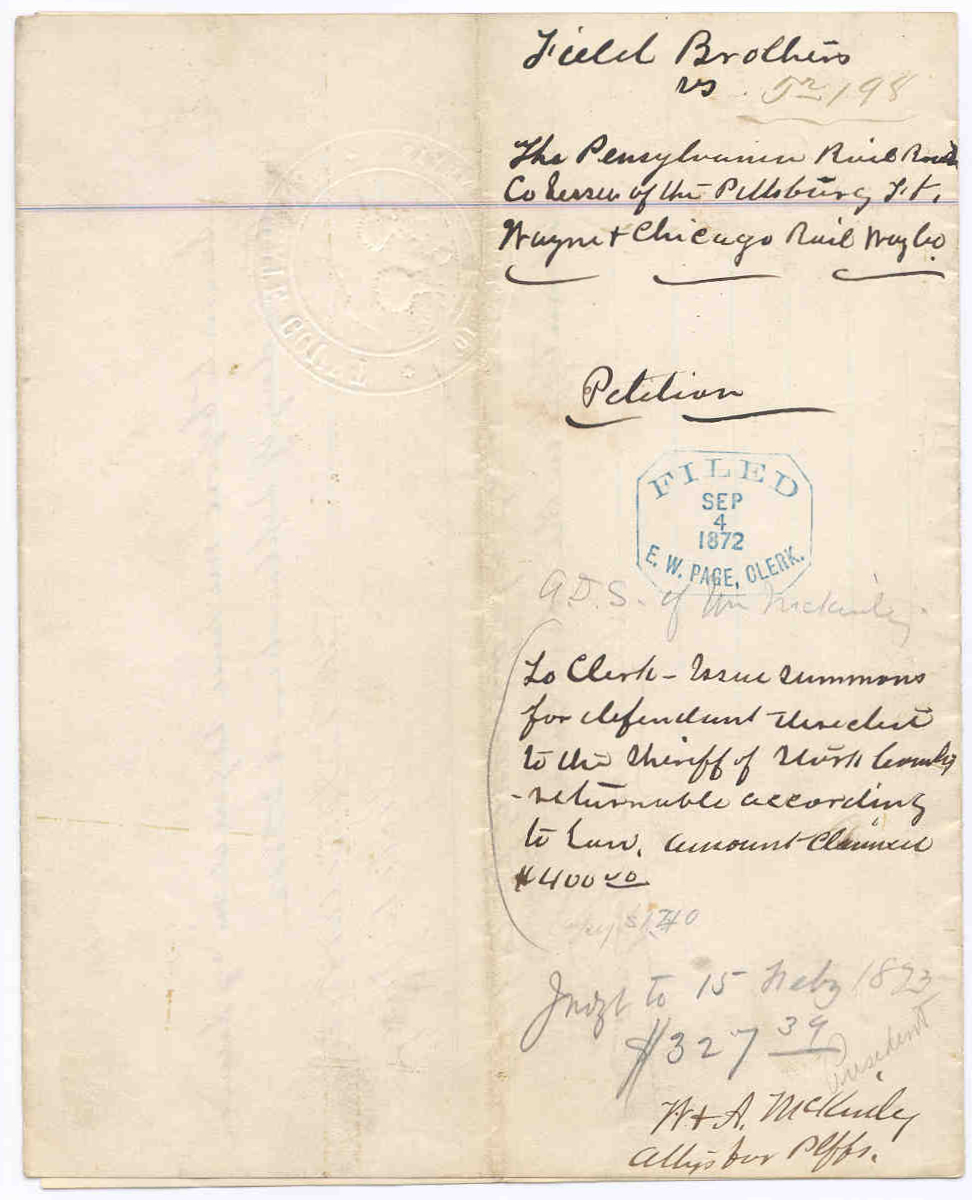 Field Brothers
vs. 5 198
The Pensylvania Rail Road
Co Lessee of the Pittsburg, Ft.
Wayne & Chicago Rail Way Co.
Petition
FILED
SEP
4
1872
E. W. PAGE, CLERK.
A.D.S. of Wm McKinley.
To Clerk - Issue summons
for defendant directed
to the Sheriff of Stark County
- returnable according
to Law. Amount Claimed
$400 00
$1,740
Judgt to 15 Feby 1873
$327 39
President
W & A. McKinley
Attys for Plffs.